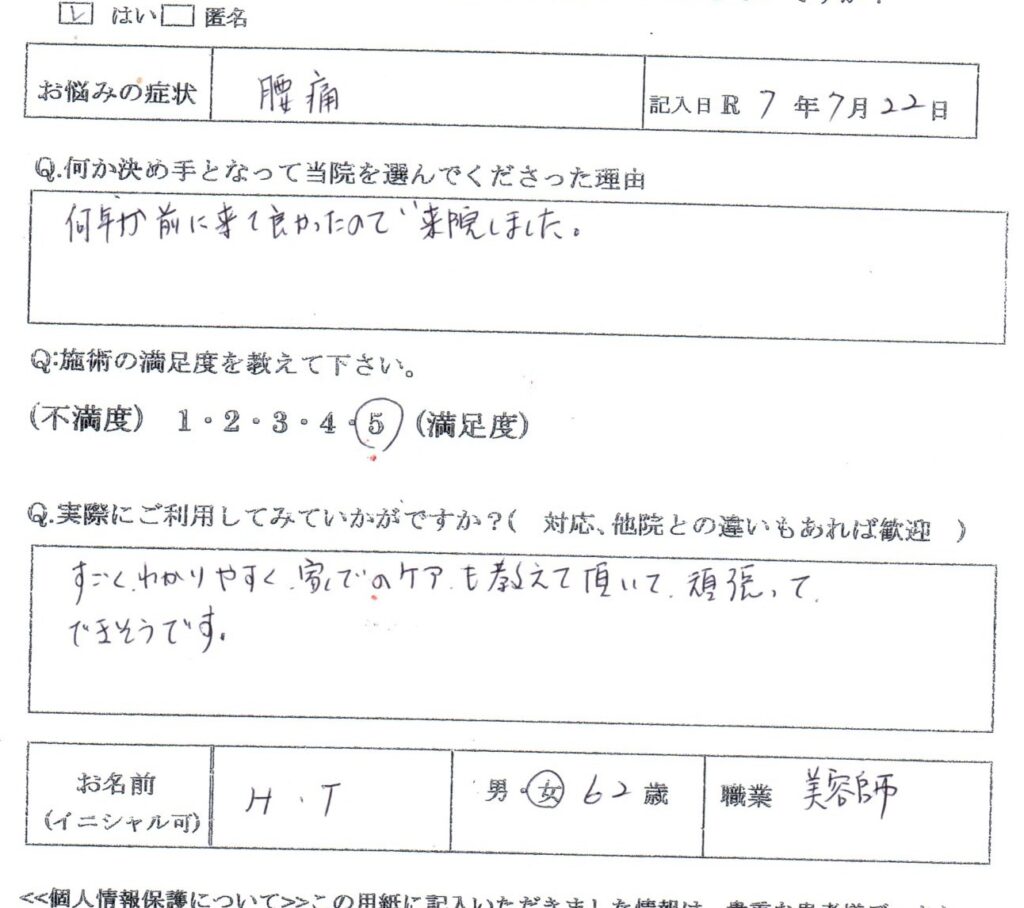 ☑ はい □ 匿名
お悩みの症状 腰痛 記入日 R 7 年 7 月 22 日
Q.何か決め手となって当院を選んでくださった理由
何年か前に来て良かったので来院しました。
Q:施術の満足度を教えて下さい。
(不満度) 1・2・3・4・5 (満足度)
Q.実際にご利用してみていかがですか?( 対応、他院との違いもあれば歓迎 )
すごく、わかりやすく、家でのケアも教えて頂いて、頑張って
できそうです。
お名前 (イニシャル可) H・T 男・女 62 歳 職業 美容師
<<個人情報保護について>>この用紙に記入いただきました情報は、貴重な患者様